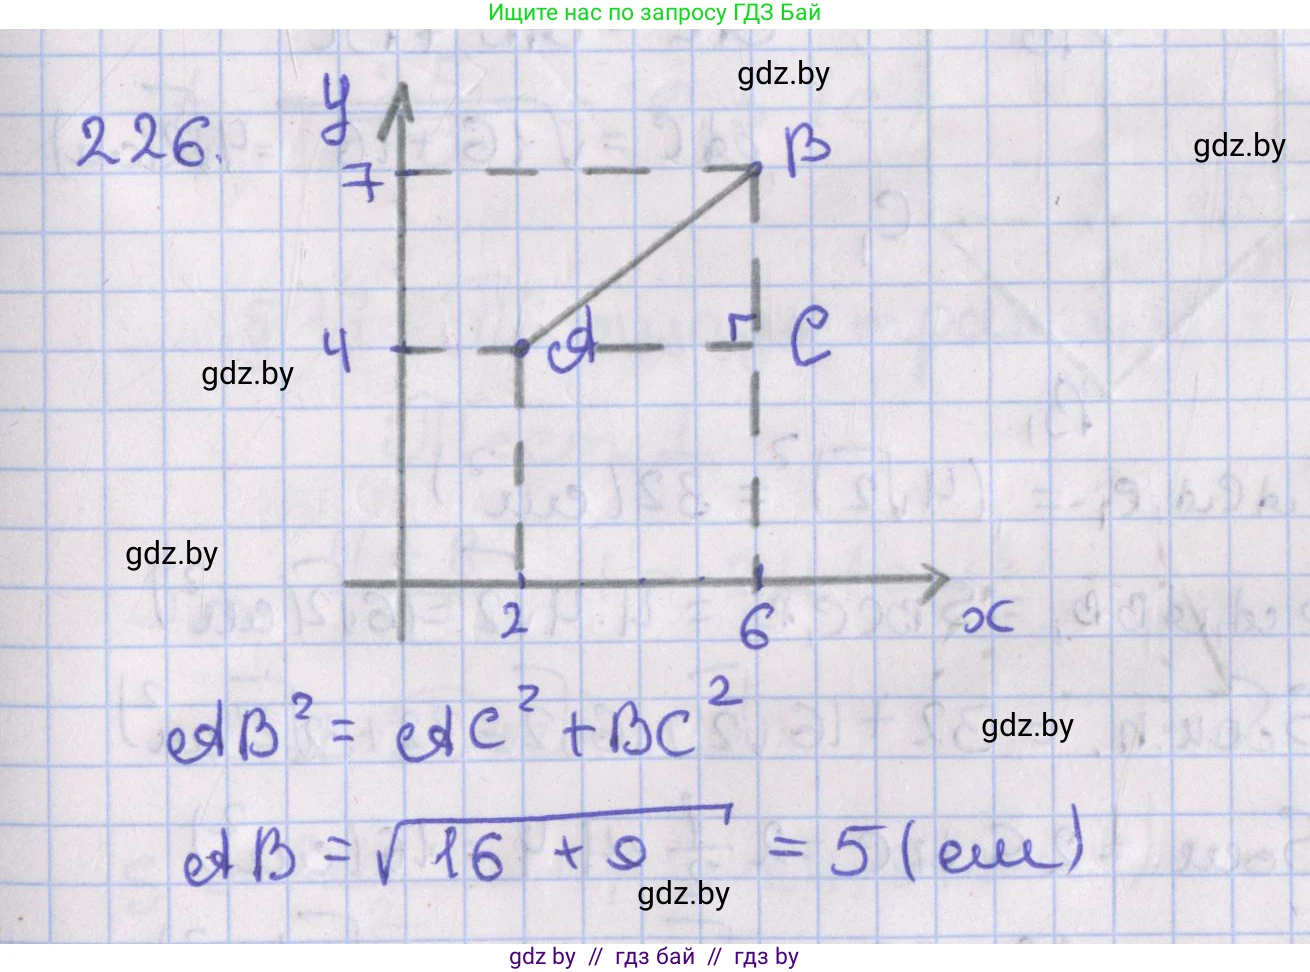 Ищите нас по запросу ГДЗ Бай
gdz.by
226.
y
B
gdz.by
7
4
A
C
gdz.by
gdz.by
2
6
x
AB² = AC² + BC²
gdz.by
AB = √16 + 9 = 5 (см)
gdz.by
gdz by // гдз бай // гдз by